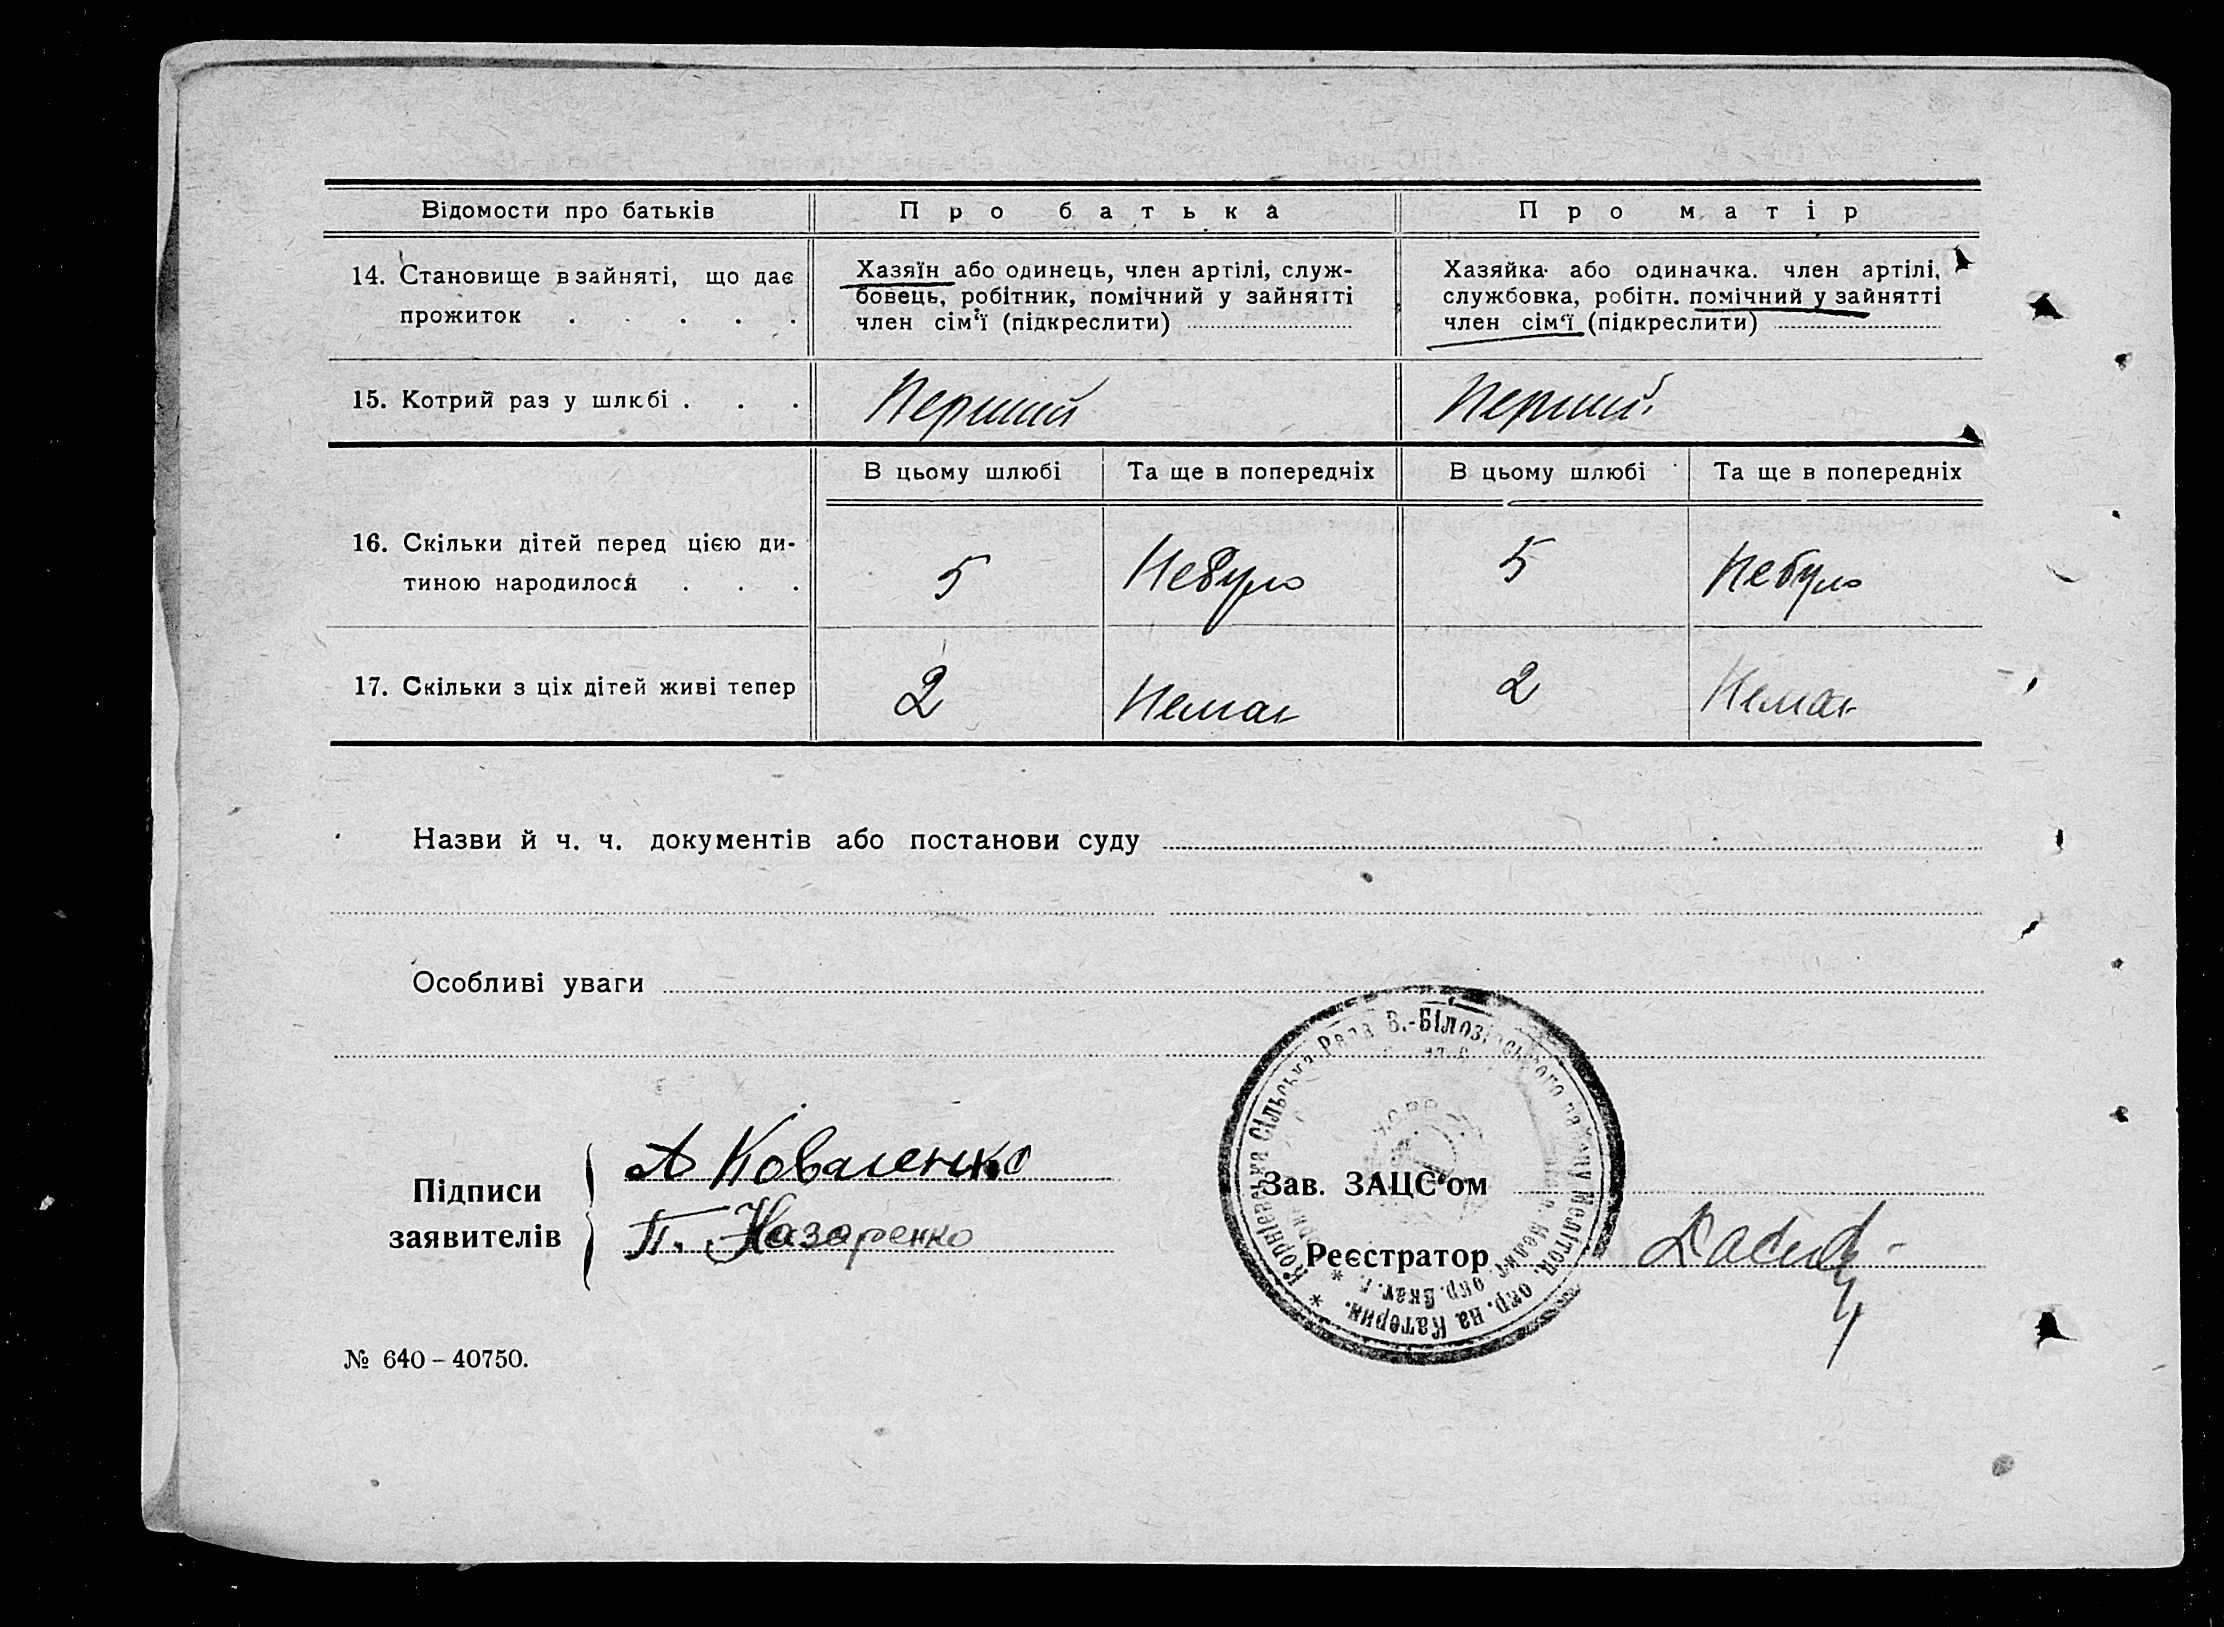 Відомости про батьків
Про батька
Про матір
14. Становище в зайняті, що дає
прожиток . . . . .
Хазяїн або одинець, член артілі, служ-
бовець, робітник, помічний у зайнятті
член сім‘ї (підкреслити)
Хазяйка або одиначка. член артілі,
службовка, робітн. помічний у зайнятті
член сім‘ї (підкреслити)
15. Котрий раз у шлюбі . . .
Перший
Перший
В цьому шлюбі
Та ще в попередніх
В цьому шлюбі
Та ще в попередніх
16. Скільки дітей перед цією ди-
тиною народилося . . .
5
Небуло
5
Небуло
17. Скільки з ціх дітей живі тепер
2
Немає
2
Немає
Назви й ч. ч. документів або постанови суду
Особливі уваги
Підписи
заявителів
А Коваленко
П. Назаренко
Зав. ЗАЦС‘ом
Реєстратор
* Корніевська Сільська Рада В.-Білозірського району Меліттоп. окр. на Катерин.
№ 640 – 40750.